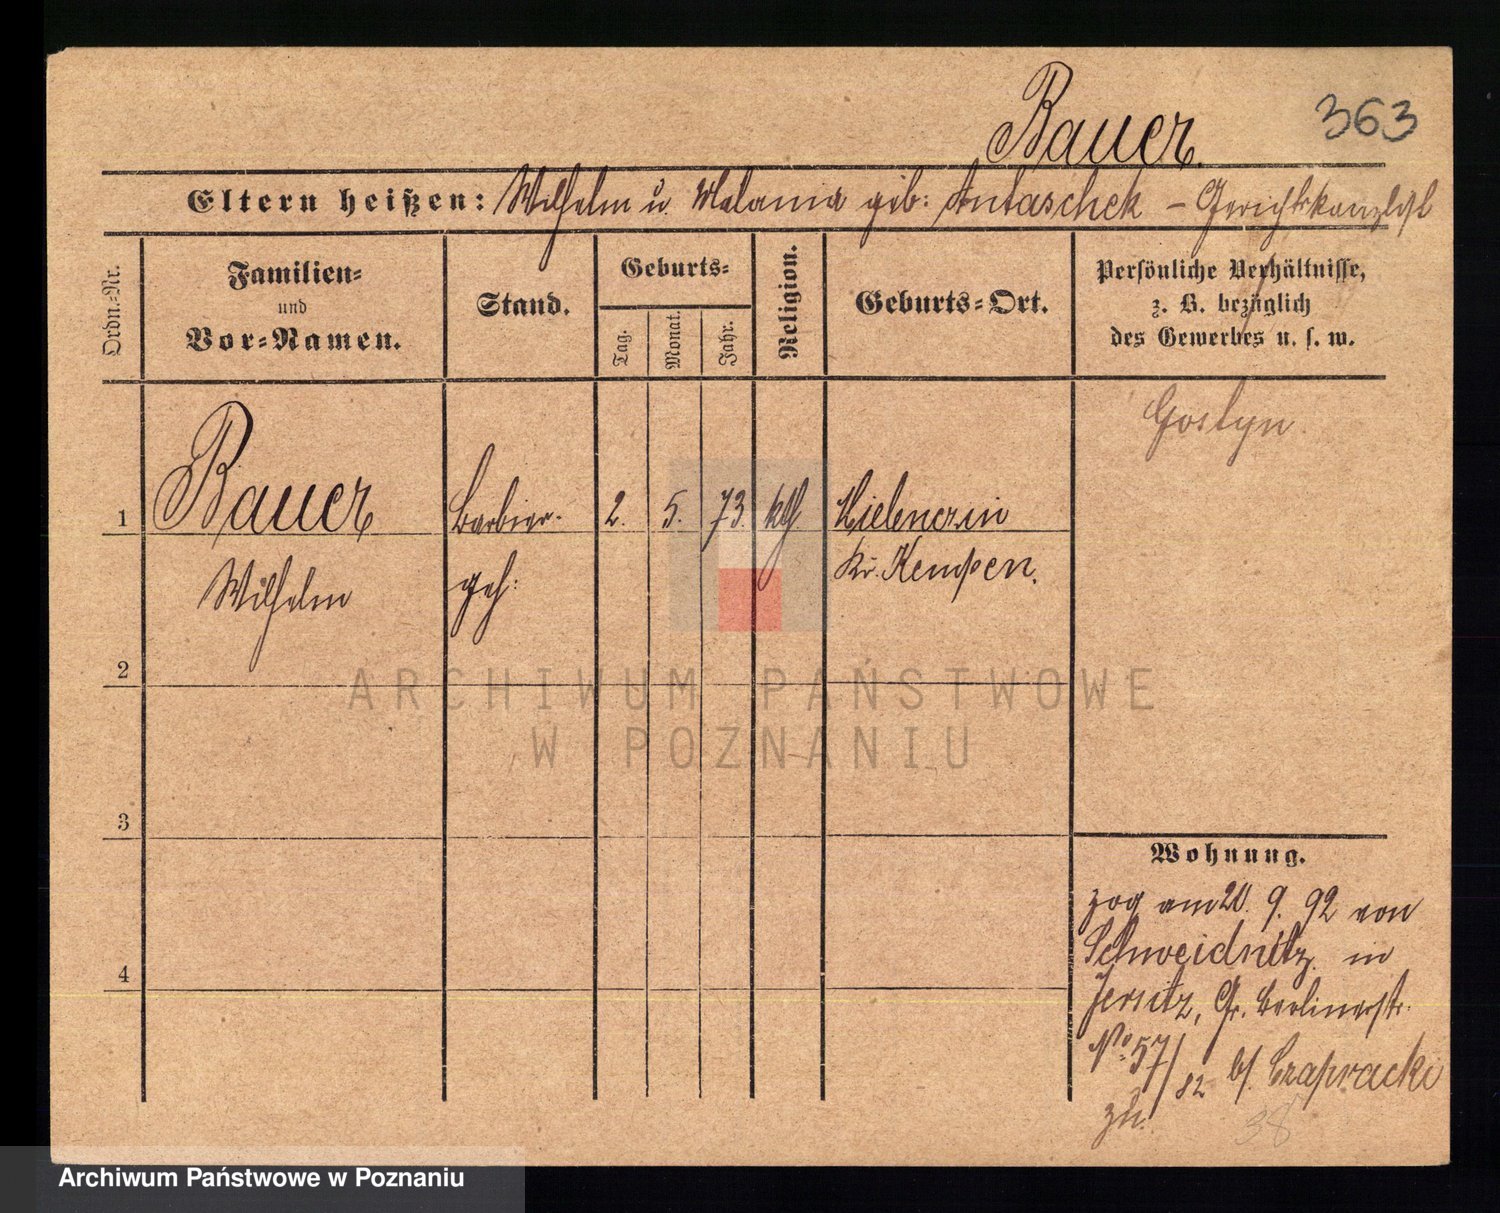 363
Bauer.
Eltern heißen: Wilhelm u. Melania geb: Antaschek - Gerichtskanzlist
Ordn.-Nr.
Familien-
und
Vor-Namen.
Stand.
Geburts-
Tag.
Monat.
Jahr.
Religion.
Geburts-Ort.
Persönliche Verhältnisse,
z. B. bezüglich
des Gewerbes u. s. w.
Gostyn.
1 Bauer Barbier- 2. 5. 73. kth.
Kr. Kempen.
Wilhelm geh:
2
3
4
ARCHIWUM PAŃSTWOWE
W POZNANIU
Wohnung.
zog am 20. 9. 92 von
Schweidnitz in
Jersitz, Gr. Berlinerstr.
No. 57/82 b/. Czapracki
zu.
38
Archiwum Państwowe w Poznaniu